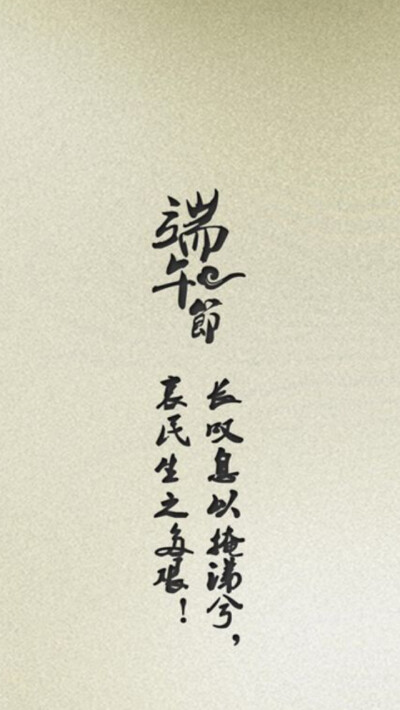 端午節
长叹息以掩涕兮，
哀民生之多艰！